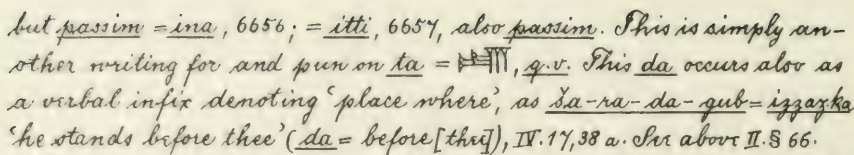 but passim = ina, 6656; = itti, 6657, also passim. This is simply an-
other writing for and pun on ta = 𒋫, q.v. This da occurs also as
a verbal infix denoting 'place where', as Ša-ra-da-gub = izzazka
'he stands before thee' (da = before [thee]), IV. 17, 38 a. See above II. § 66.